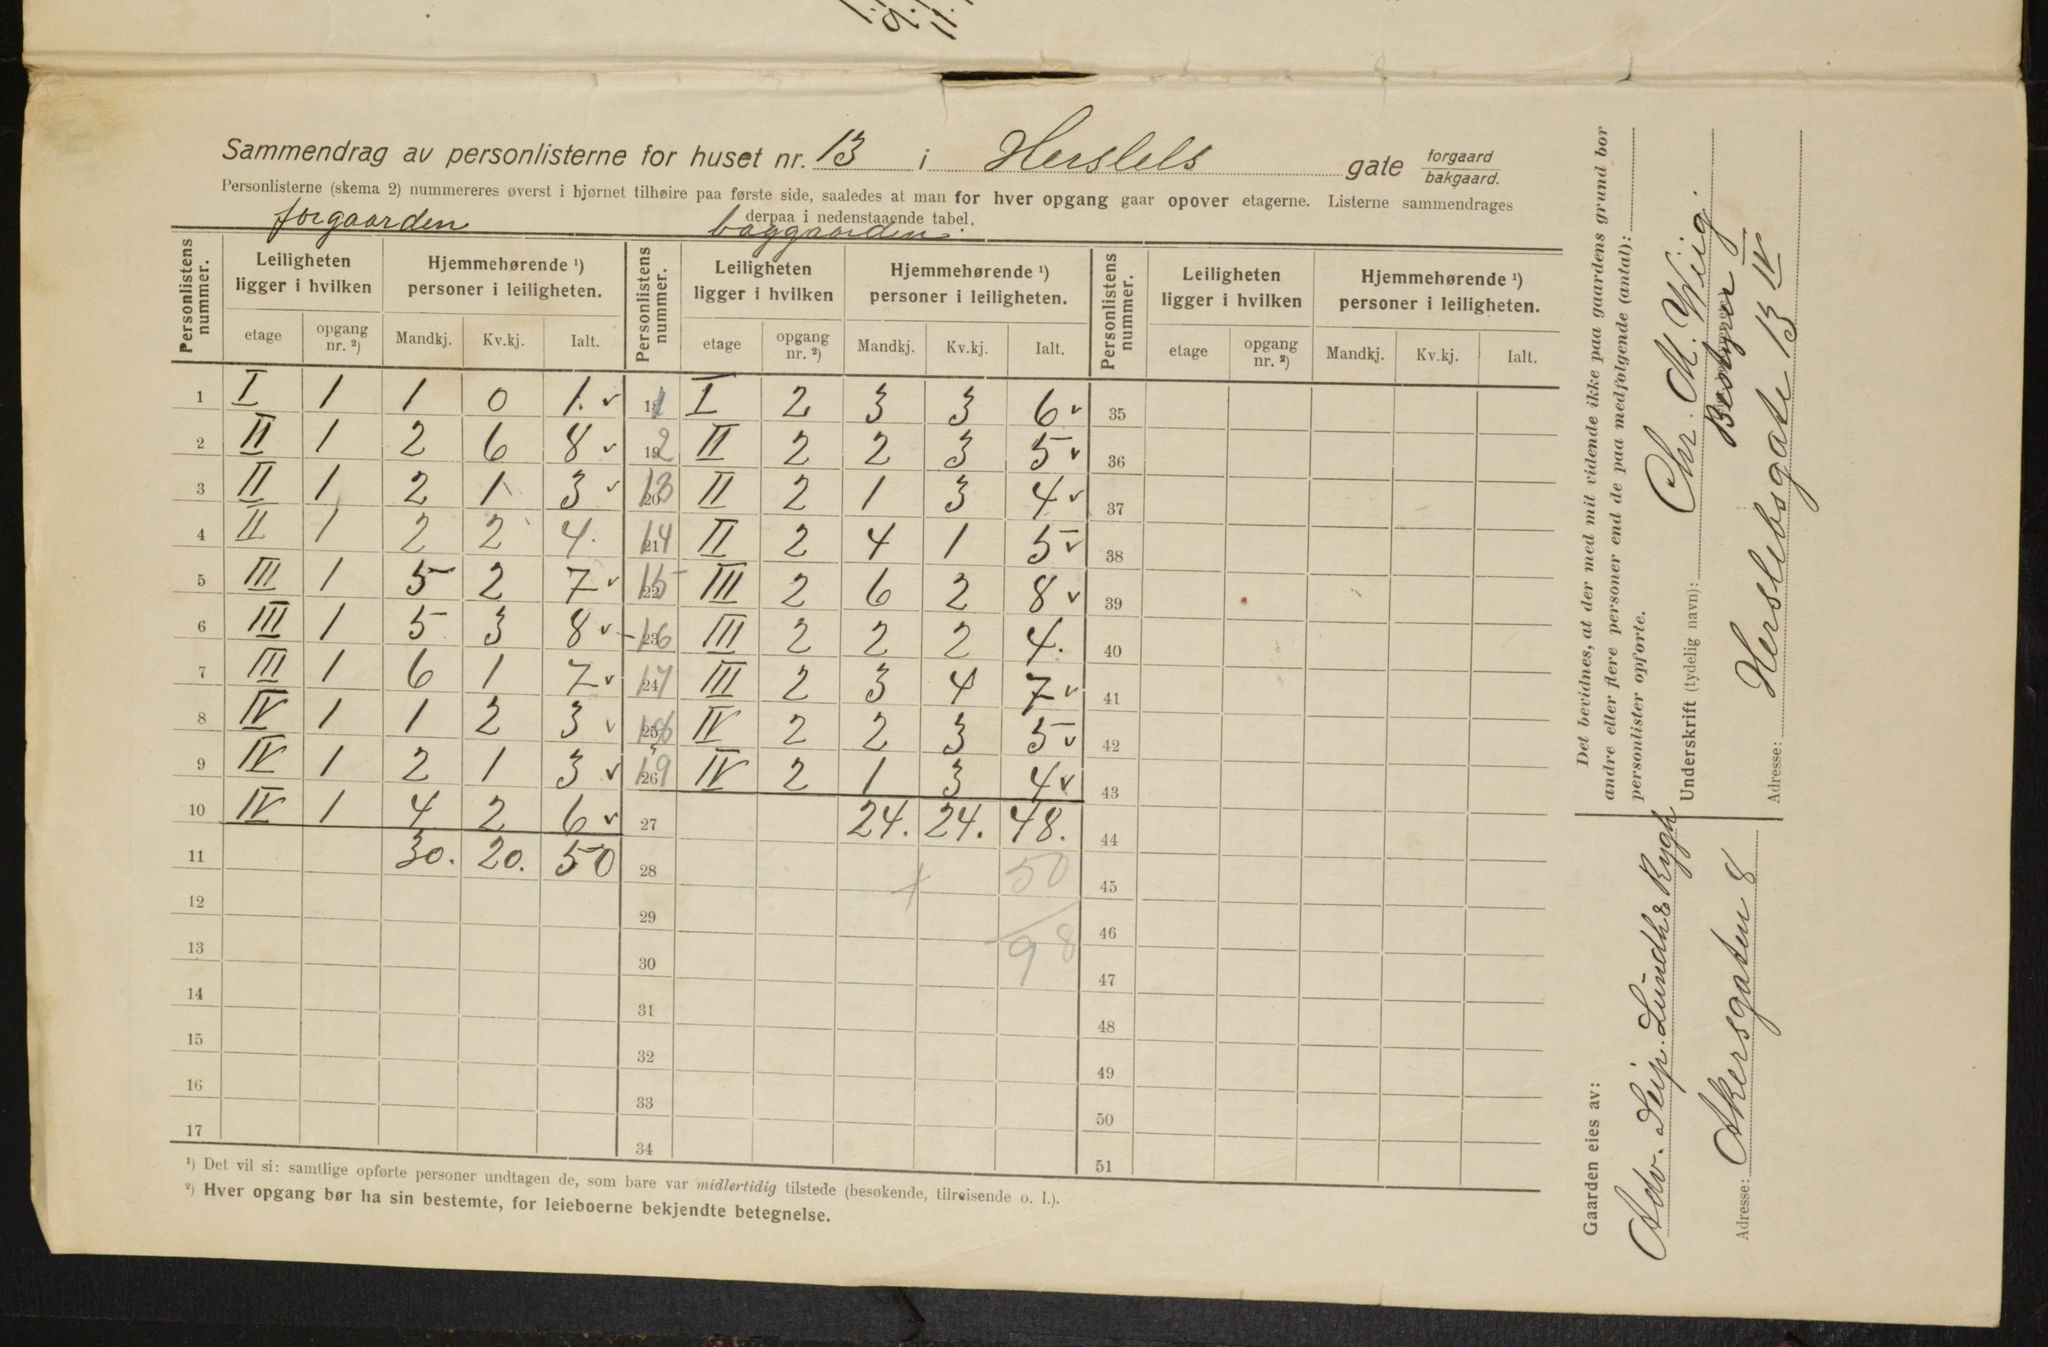 Sammendrag av personlisterne for huset nr. 13 i Herslebs gate forgaard
bakgaard.
Personlisterne (skema 2) nummereres øverst i hjørnet tilhøire paa første side, saaledes at man for hver opgang gaar opover etagerne. Listerne sammendrages
derpaa i nedenstaaende tabel.
forgaarden baggaarden.
Personlistens nummer. Leiligheten ligger i hvilken Hjemmehørende ¹) personer i leiligheten. Personlistens nummer. Leiligheten ligger i hvilken Hjemmehørende ¹) personer i leiligheten. Personlistens nummer. Leiligheten ligger i hvilken Hjemmehørende ¹) personer i leiligheten.
etage opgang nr. ²) Mandkj. Kv.kj. Ialt. etage opgang nr. ²) Mandkj. Kv.kj. Ialt. etage opgang nr. ²) Mandkj. Kv.kj. Ialt.
1 I 1 1 0 1. v 18 11 I 2 3 3 6 v 35
2 II 1 2 6 8 v 19 12 II 2 2 3 5 v 36
3 II 1 2 1 3 v 20 13 II 2 1 3 4 v 37
4 II 1 2 2 4. 21 14 II 2 4 1 5 v 38
5 III 1 5 2 7 v 22 15 III 2 6 2 8 v 39
6 III 1 5 3 8 v 23 16 III 2 2 2 4. 40
7 III 1 6 1 7 v 24 17 III 2 3 4 7 v 41
8 IV 1 1 2 3 v 25 18 IV 2 2 3 5 v 42
9 IV 1 2 1 3 v 26 19 IV 2 1 3 4 v 43
10 IV 1 4 2 6 v 27 24. 24. 48. 44
11 30. 20. 50 28 50 45
12 29 46
13 30 98 47
14 31 48
15 32 49
16 33 50
17 34 51
¹) Det vil si: samtlige opførte personer undtagen de, som bare var midlertidig tilstede (besøkende, tilreisende o. l.).
²) Hver opgang bør ha sin bestemte, for leieboerne bekjendte betegnelse.
Det bevidnes, at der med mit vidende ikke paa gaardens grund bor
andre eller flere personer end de paa medfølgende (antal):
personlister opførte.
Underskrift (tydelig navn): Chr. M. Wiig.
Bestyrer
Adresse: Herslebsgate 13 IV
Gaarden eies av:
Adv. Seip. Lundh & Rygh
Adresse: Akersgaten 8